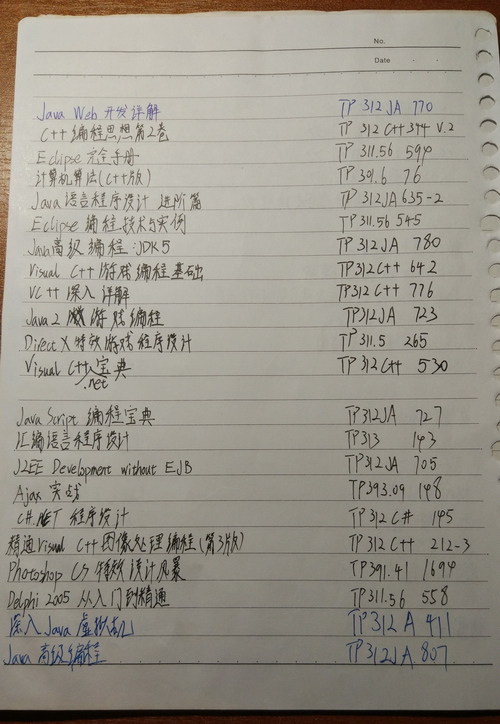 No.
Date
Java Web 开发详解 TP 312 JA 770
C++ 编程思想第2卷 TP 312 C++ 394 V.2
Eclipse 完全手册 TP 311.56 594
计算机算法(C++版) TP 301.6 76
Java 语言程序设计 进阶篇 TP312JA 635-2
Eclipse 编程技术与实例 TP311.56 545
Java高级编程:JDK5 TP312JA 780
Visual C++游戏编程基础 TP312C++ 642
VC++ 深入详解 TP312 C++ 776
Java 2 游戏编程 TP312JA 723
Direct X 特效游戏程序设计 TP311.5 265
Visual C++宝典 TP 312 C++ 530
.net
Java Script 编程宝典 TP312JA 727
汇编语言程序设计 TP313 143
J2EE Development without EJB TP312JA 705
Ajax 实战 TP393.09 148
C#.NET 程序设计 TP 312 C# 145
精通Visual C++图像处理编程(第3版) TP312 C++ 212-3
Photoshop CS 特效设计风暴 TP391.41 1694
Delphi 2005 从入门到精通 TP311.56 558
深入Java虚拟机 TP312 A 411
Java 高级编程 TP312JA 807